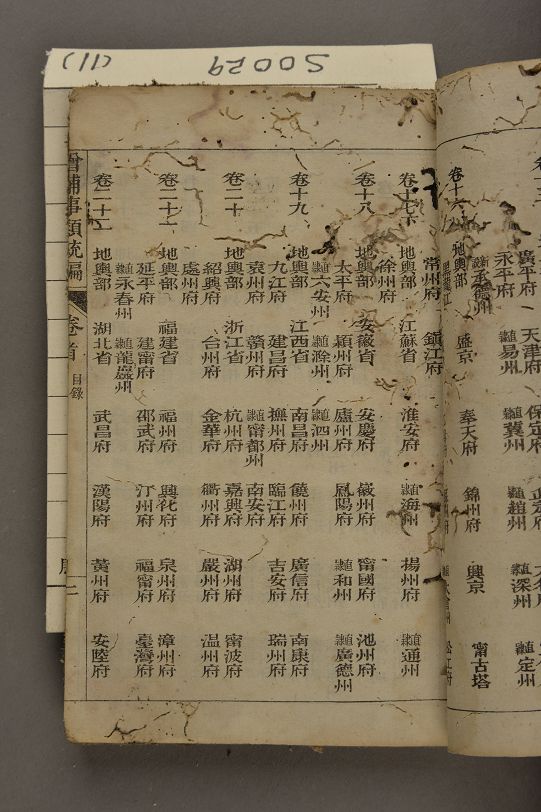 S0029
(11)
廣平府 天津府 保定府
永平府 直隸易州 直隸冀州 直隸趙州 直隸深州 直隸定州
直隸承德州
卷十六 地輿部 盛京 奉天府 錦州府 興京 甯古塔
黑龍江
常州府 鎮江府
卷十七 地輿部 江蘇省 淮安府 直隸海州 揚州府 直隸通州
徐州府
卷十八 地輿部 安徽省 安慶府 徽州府 甯國府 池州府
太平府 潁州府 廬州府 鳳陽府 直隸和州 直隸廣德州
直隸六安州 直隸滁州 直隸泗州
卷十九 地輿部 江西省 南昌府 饒州府 廣信府 南康府
九江府 建昌府 撫州府 臨江府 吉安府 瑞州府
袁州府 贛州府 直隸甯都州 南安府
卷二十 地輿部 浙江省 杭州府 嘉興府 湖州府 甯波府
紹興府 台州府 金華府 衢州府 嚴州府 温州府
處州府
卷二十一 地輿部 福建省 福州府 興化府 泉州府 漳州府
延平府 建甯府 邵武府 汀州府 福甯府 臺灣府
直隸永春州 直隸龍巖州
卷二十二 地輿部 湖北省 武昌府 漢陽府 黃州府 安陸府
增補事類統編 卷首 目錄